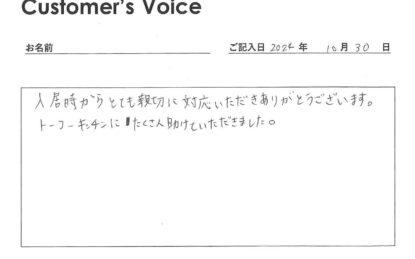 Customer's Voice
お名前 ご記入日 2024 年 10 月 30 日
入居時からとても親切に対応いただきありがとうございます。
トーコーキッチンにたくさん助けていただきました。